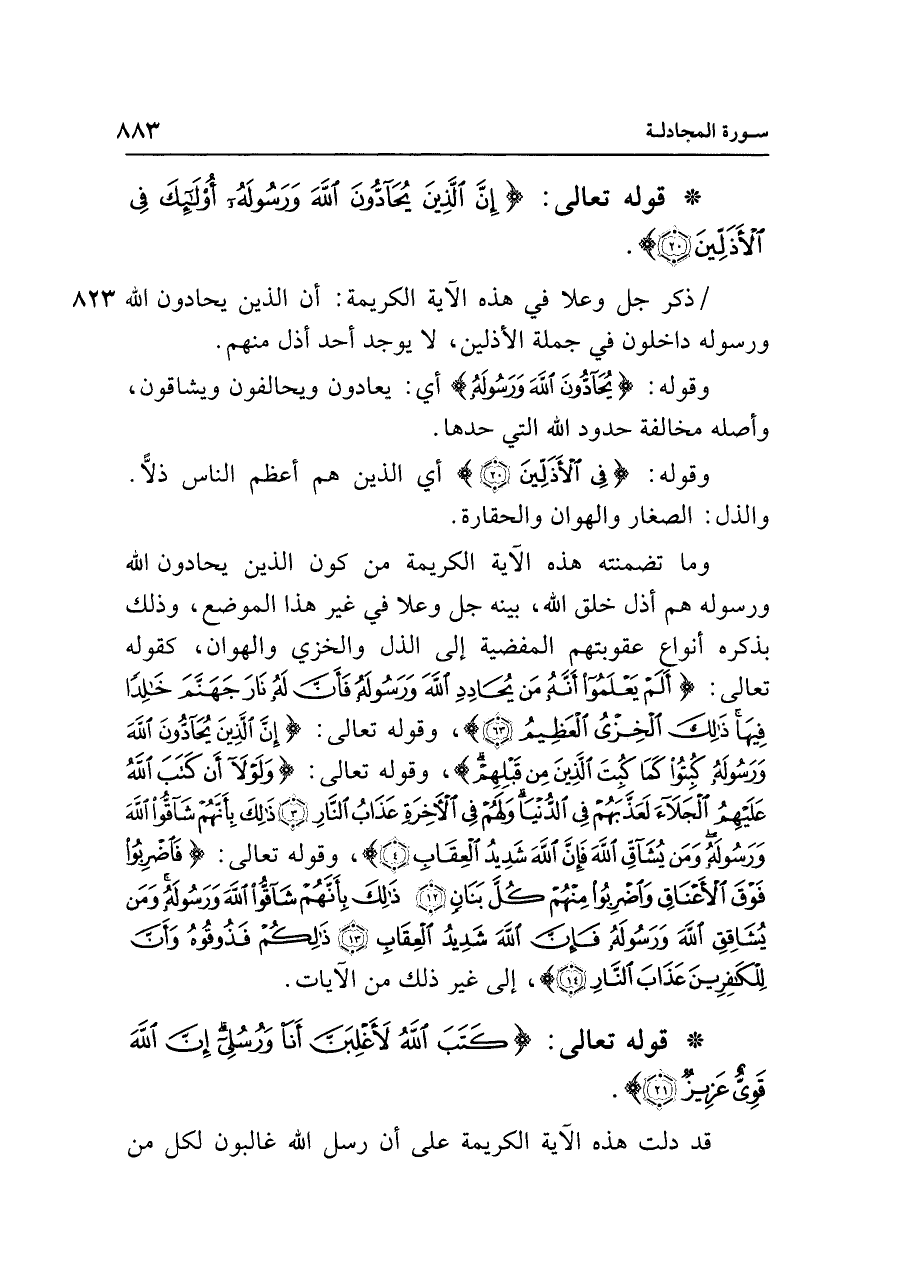 سورة المجادلة ٨٨٣
* قوله تعالى: ﴿ إِنَّ ٱلَّذِينَ يُحَآدُّونَ ٱللَّهَ وَرَسُولَهُۥٓ أُوْلَٰٓئِكَ فِي
ٱلْأَذَلِّينَ ٢٠﴾ .
/ ذكر جل وعلا في هذه الآية الكريمة: أن الذين يحادون الله ٨٢٣
ورسوله داخلون في جملة الأذلين، لا يوجد أحد أذل منهم.
وقوله: ﴿ يُحَآدُّونَ ٱللَّهَ وَرَسُولَهُۥ ﴾ أي: يعادون ويحالفون ويشاقون،
وأصله مخالفة حدود الله التي حدها.
وقوله: ﴿ فِي ٱلْأَذَلِّينَ ٢٠ ﴾ أي الذين هم أعظم الناس ذلاًّ.
والذل: الصغار والهوان والحقارة.
وما تضمنته هذه الآية الكريمة من كون الذين يحادون الله
ورسوله هم أذل خلق الله، بينه جل وعلا في غير هذا الموضع، وذلك
بذكره أنواع عقوبتهم المفضية إلى الذل والخزي والهوان، كقوله
تعالى: ﴿ أَلَمْ يَعْلَمُوٓا۟ أَنَّهُۥ مَن يُحَادِدِ ٱللَّهَ وَرَسُولَهُۥ فَأَنَّ لَهُۥ نَارَ جَهَنَّمَ خَٰلِدًا
فِيهَا ۚ ذَٰلِكَ ٱلْخِزْىُ ٱلْعَظِيمُ ٦٣﴾، وقوله تعالى: ﴿ إِنَّ ٱلَّذِينَ يُحَآدُّونَ ٱللَّهَ
وَرَسُولَهُۥ كُبِتُوا۟ كَمَا كُبِتَ ٱلَّذِينَ مِن قَبْلِهِمْ ۚ﴾، وقوله تعالى: ﴿ وَلَوْلَآ أَن كَتَبَ ٱللَّهُ
عَلَيْهِمُ ٱلْجَلَآءَ لَعَذَّبَهُمْ فِي ٱلدُّنْيَا ۖ وَلَهُمْ فِي ٱلْءَاخِرَةِ عَذَابُ ٱلنَّارِ ٣ ذَٰلِكَ بِأَنَّهُمْ شَآقُّوا۟ ٱللَّهَ
وَرَسُولَهُۥ ۖ وَمَن يُشَآقِّ ٱللَّهَ فَإِنَّ ٱللَّهَ شَدِيدُ ٱلْعِقَابِ ٤﴾، وقوله تعالى: ﴿ فَٱضْرِبُوا۟
فَوْقَ ٱلْأَعْنَاقِ وَٱضْرِبُوا۟ مِنْهُمْ كُلَّ بَنَانٍ ١٢ ذَٰلِكَ بِأَنَّهُمْ شَآقُّوا۟ ٱللَّهَ وَرَسُولَهُۥ ۚ وَمَن
يُشَاقِقِ ٱللَّهَ وَرَسُولَهُۥ فَإِنَّ ٱللَّهَ شَدِيدُ ٱلْعِقَابِ ١٣ ذَٰلِكُمْ فَذُوقُوهُ وَأَنَّ
لِلْكَٰفِرِينَ عَذَابَ ٱلنَّارِ ١٤﴾، إلى غير ذلك من الآيات.
* قوله تعالى: ﴿ كَتَبَ ٱللَّهُ لَأَغْلِبَنَّ أَنَا۠ وَرُسُلِىٓ ۚ إِنَّ ٱللَّهَ
قَوِىٌّ عَزِيزٌ ٢١﴾ .
قد دلت هذه الآية الكريمة على أن رسل الله غالبون لكل من